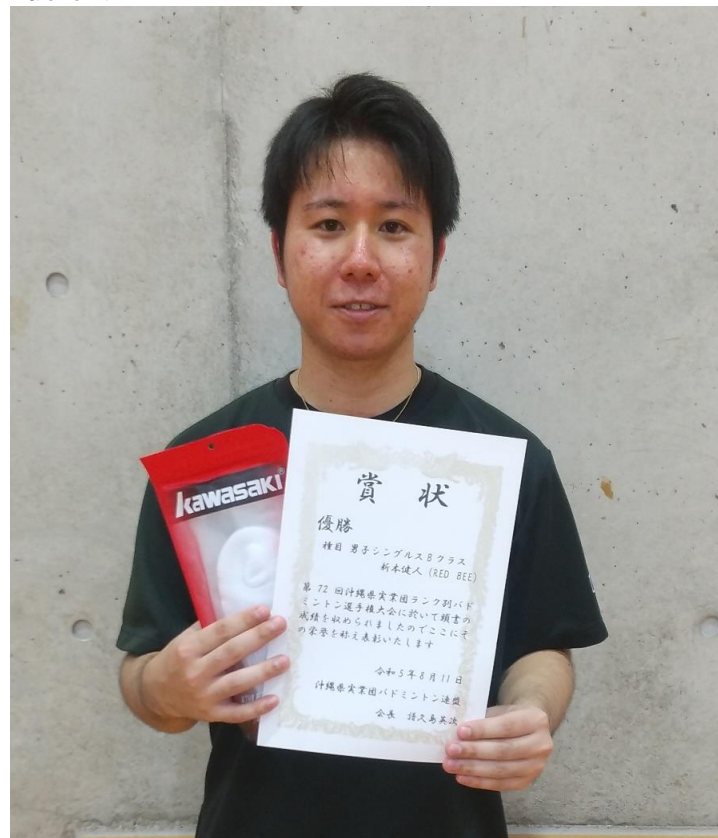 kawasaki
賞 状
優勝
種目 男子シングルスBクラス
新本健人 (RED BEE)
第 72 回沖縄県実業団ランク別バド
ミントン選手権大会に於いて頭書の
成績を収められましたのでここにそ
の栄誉を称え表彰いたします
令和5年8月11日
沖縄県実業団バドミントン連盟
会長 諸久島英次